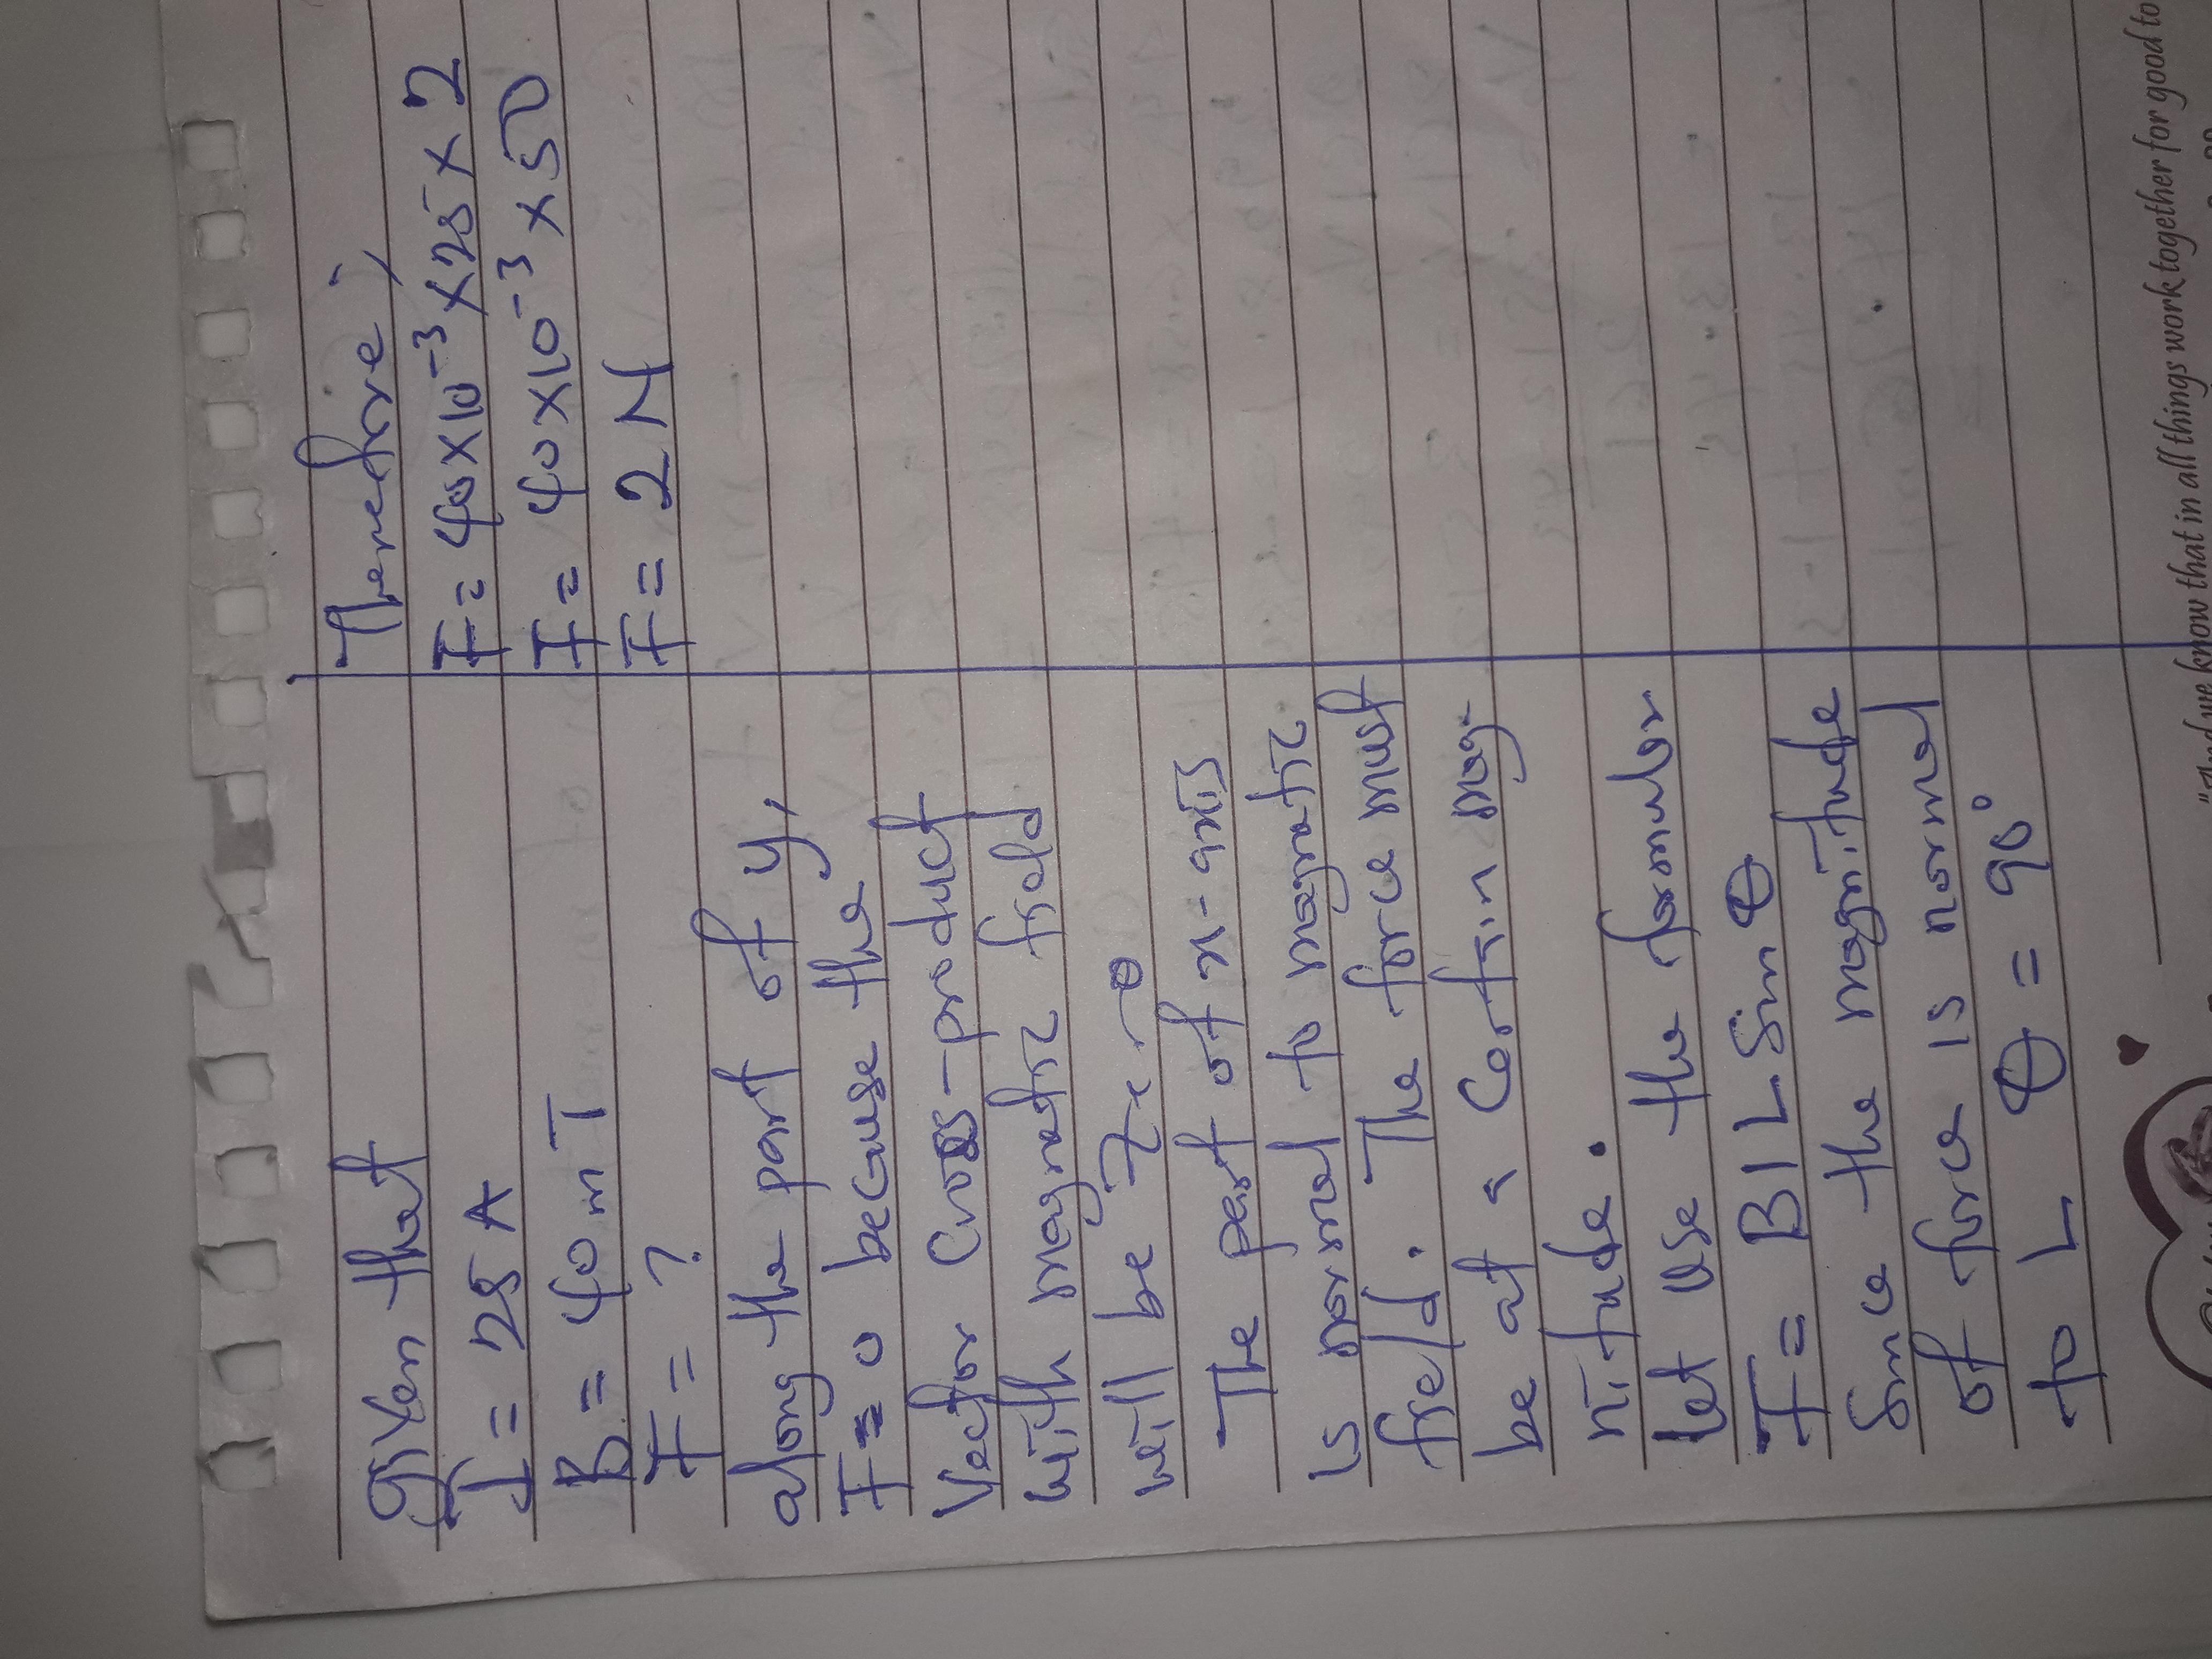 Given that
I = 25A
B = 40mT
F = ?
along the part of y,
F = 0 because the
Vector Cross-product
with magnetic field
will be zero
The part of x-axis
is normal to magnetic
field. The force must
be at a certain mag-
nitude.
let use the formular
F = BILSinθ
Since the magnitude
of force is normal
to L θ = 90°
Therefore;
F = 40x10⁻³x25x2
F = 40x10⁻³x50
F = 2N
"And we know that in all things work together for good to